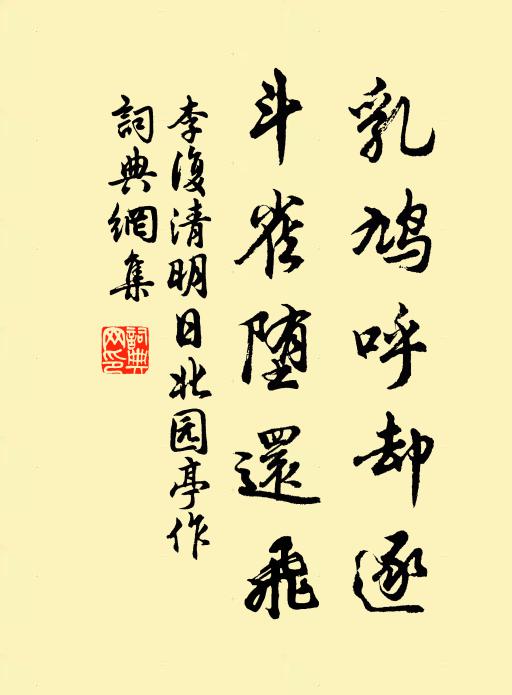 乳鳩呼却逐
斗雀堕還飛
李復清明日北园亭作
詞典網集
詞典网印